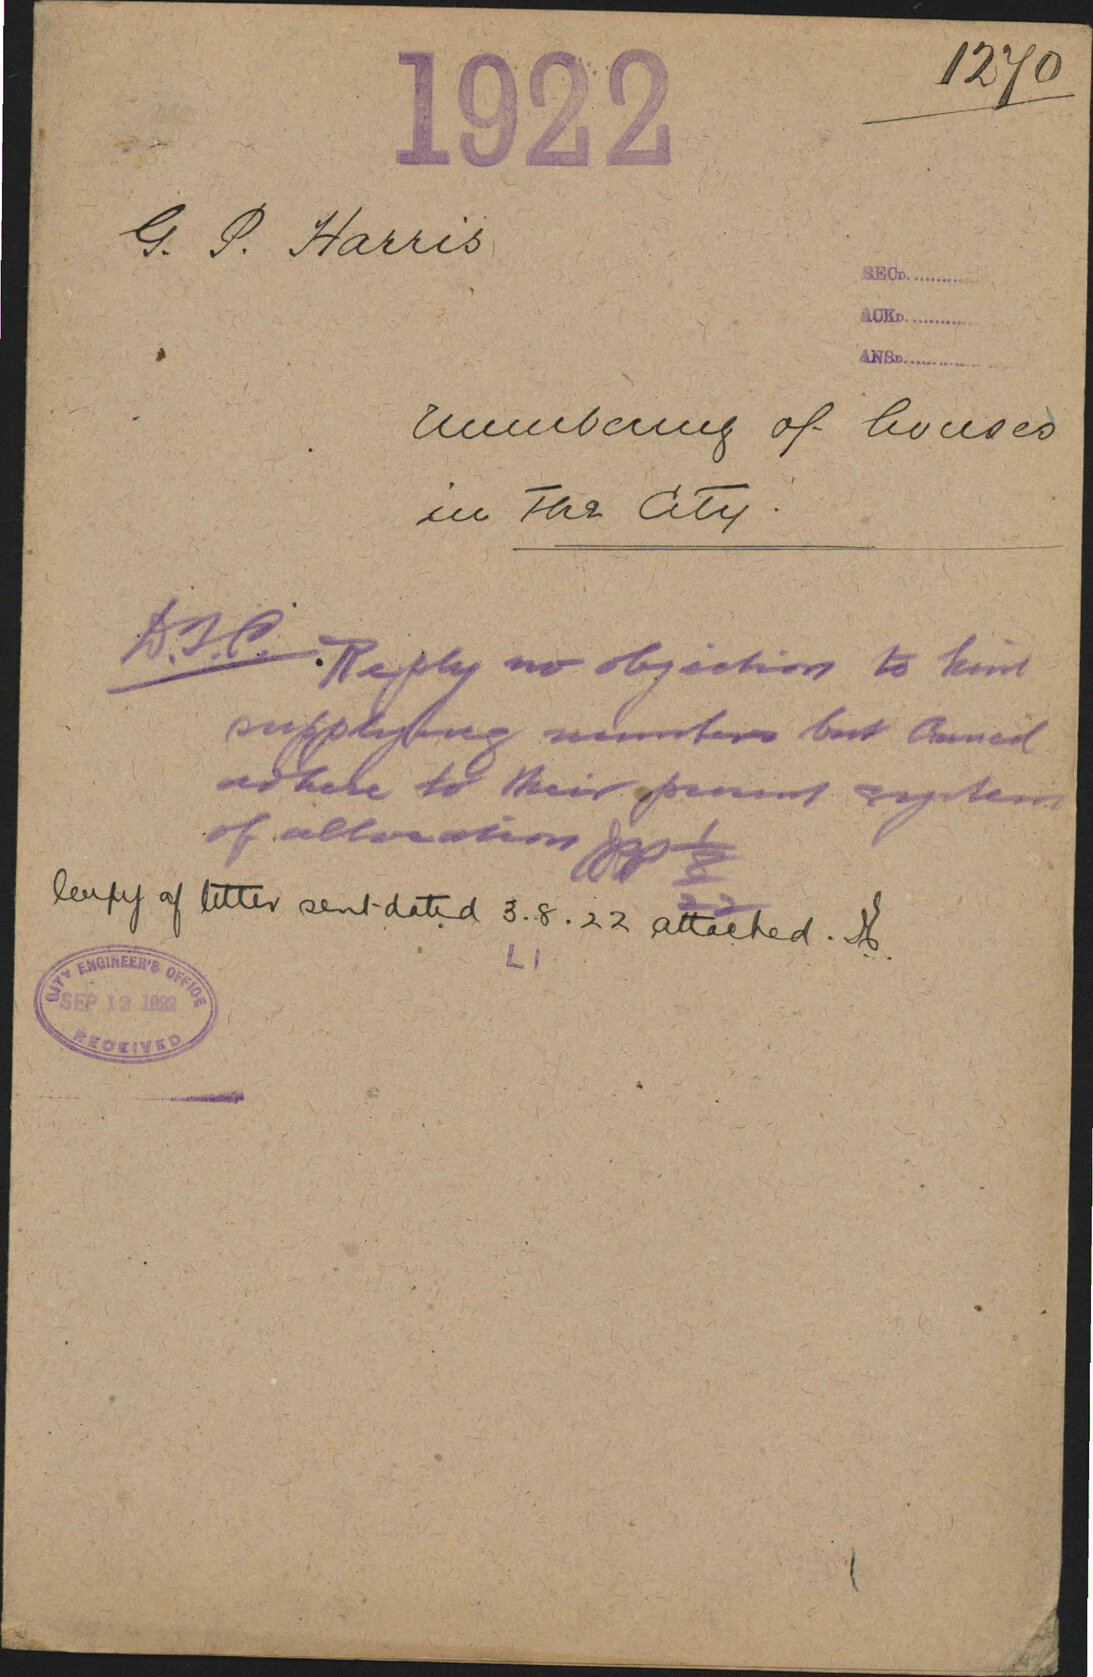 1922
1270
G. P. Harris
RECD.
ACKD.
ANSD.
Numbering of houses
in the City.
D.T.C. Reply no objection to him
supplying numbers but Council
adhere to their present system
of allocation
1/8/22
Copy of letter sent dated 3.8.22 attached.
L1
CITY ENGINEER'S OFFICE
SEP 12 1922
RECEIVED